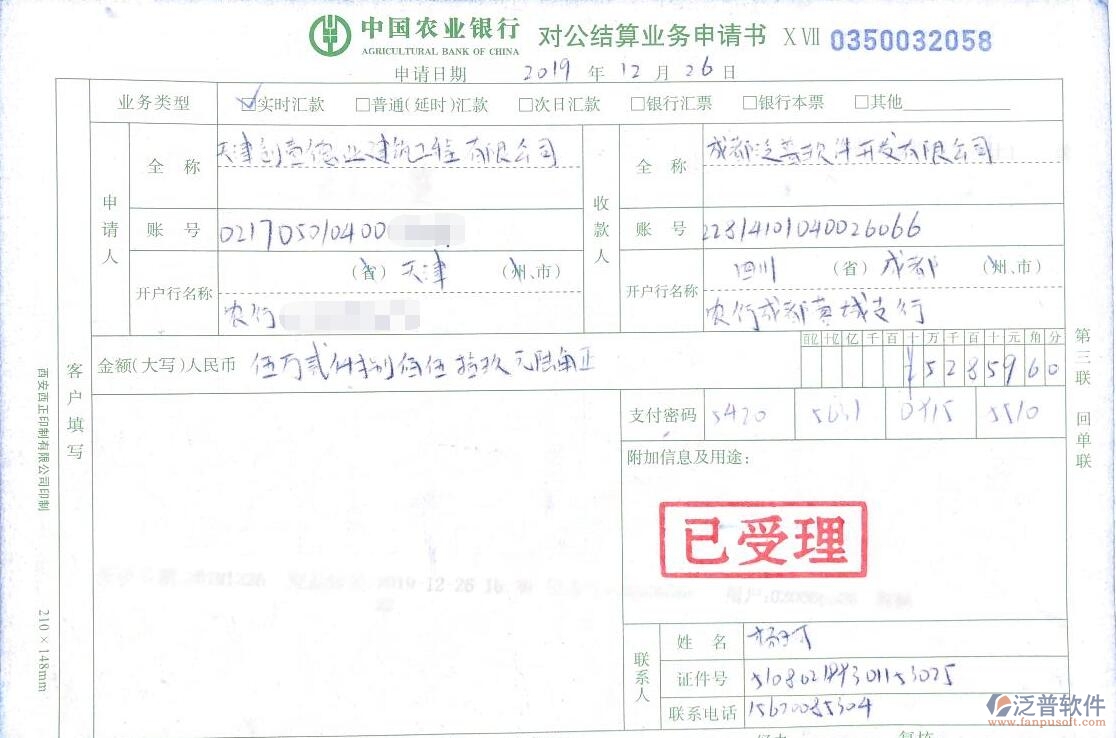 中国农业银行 对公结算业务申请书 XVII 0350032058
AGRICULTURAL BANK OF CHINA
申请日期 2019 年 12 月 26 日
业务类型 实时汇款 普通(延时)汇款 次日汇款 银行汇票 银行本票 其他
申请人
全称 天津创壹德业建筑工程有限公司
账号 021705010400
开户行名称 (省) 天津 (州、市)
农行
收款人
全称 成都泛普软件开发有限公司
账号 22814101040026066
开户行名称 四川 (省) 成都 (州、市)
农行成都支行
金额(大写)人民币 伍万贰仟捌佰伍拾玖元陆角正
亿 千 百 十 万 千 百 十 元 角 分
5 2 8 5 9 6 0
支付密码 5420 5510
附加信息及用途:
已受理
2019-12-26
联系人
姓名
证件号
联系电话
客户填写
第三联 回单联
西安西正印制有限公司印制
210×148mm
泛普软件
www.fanpusoft.com